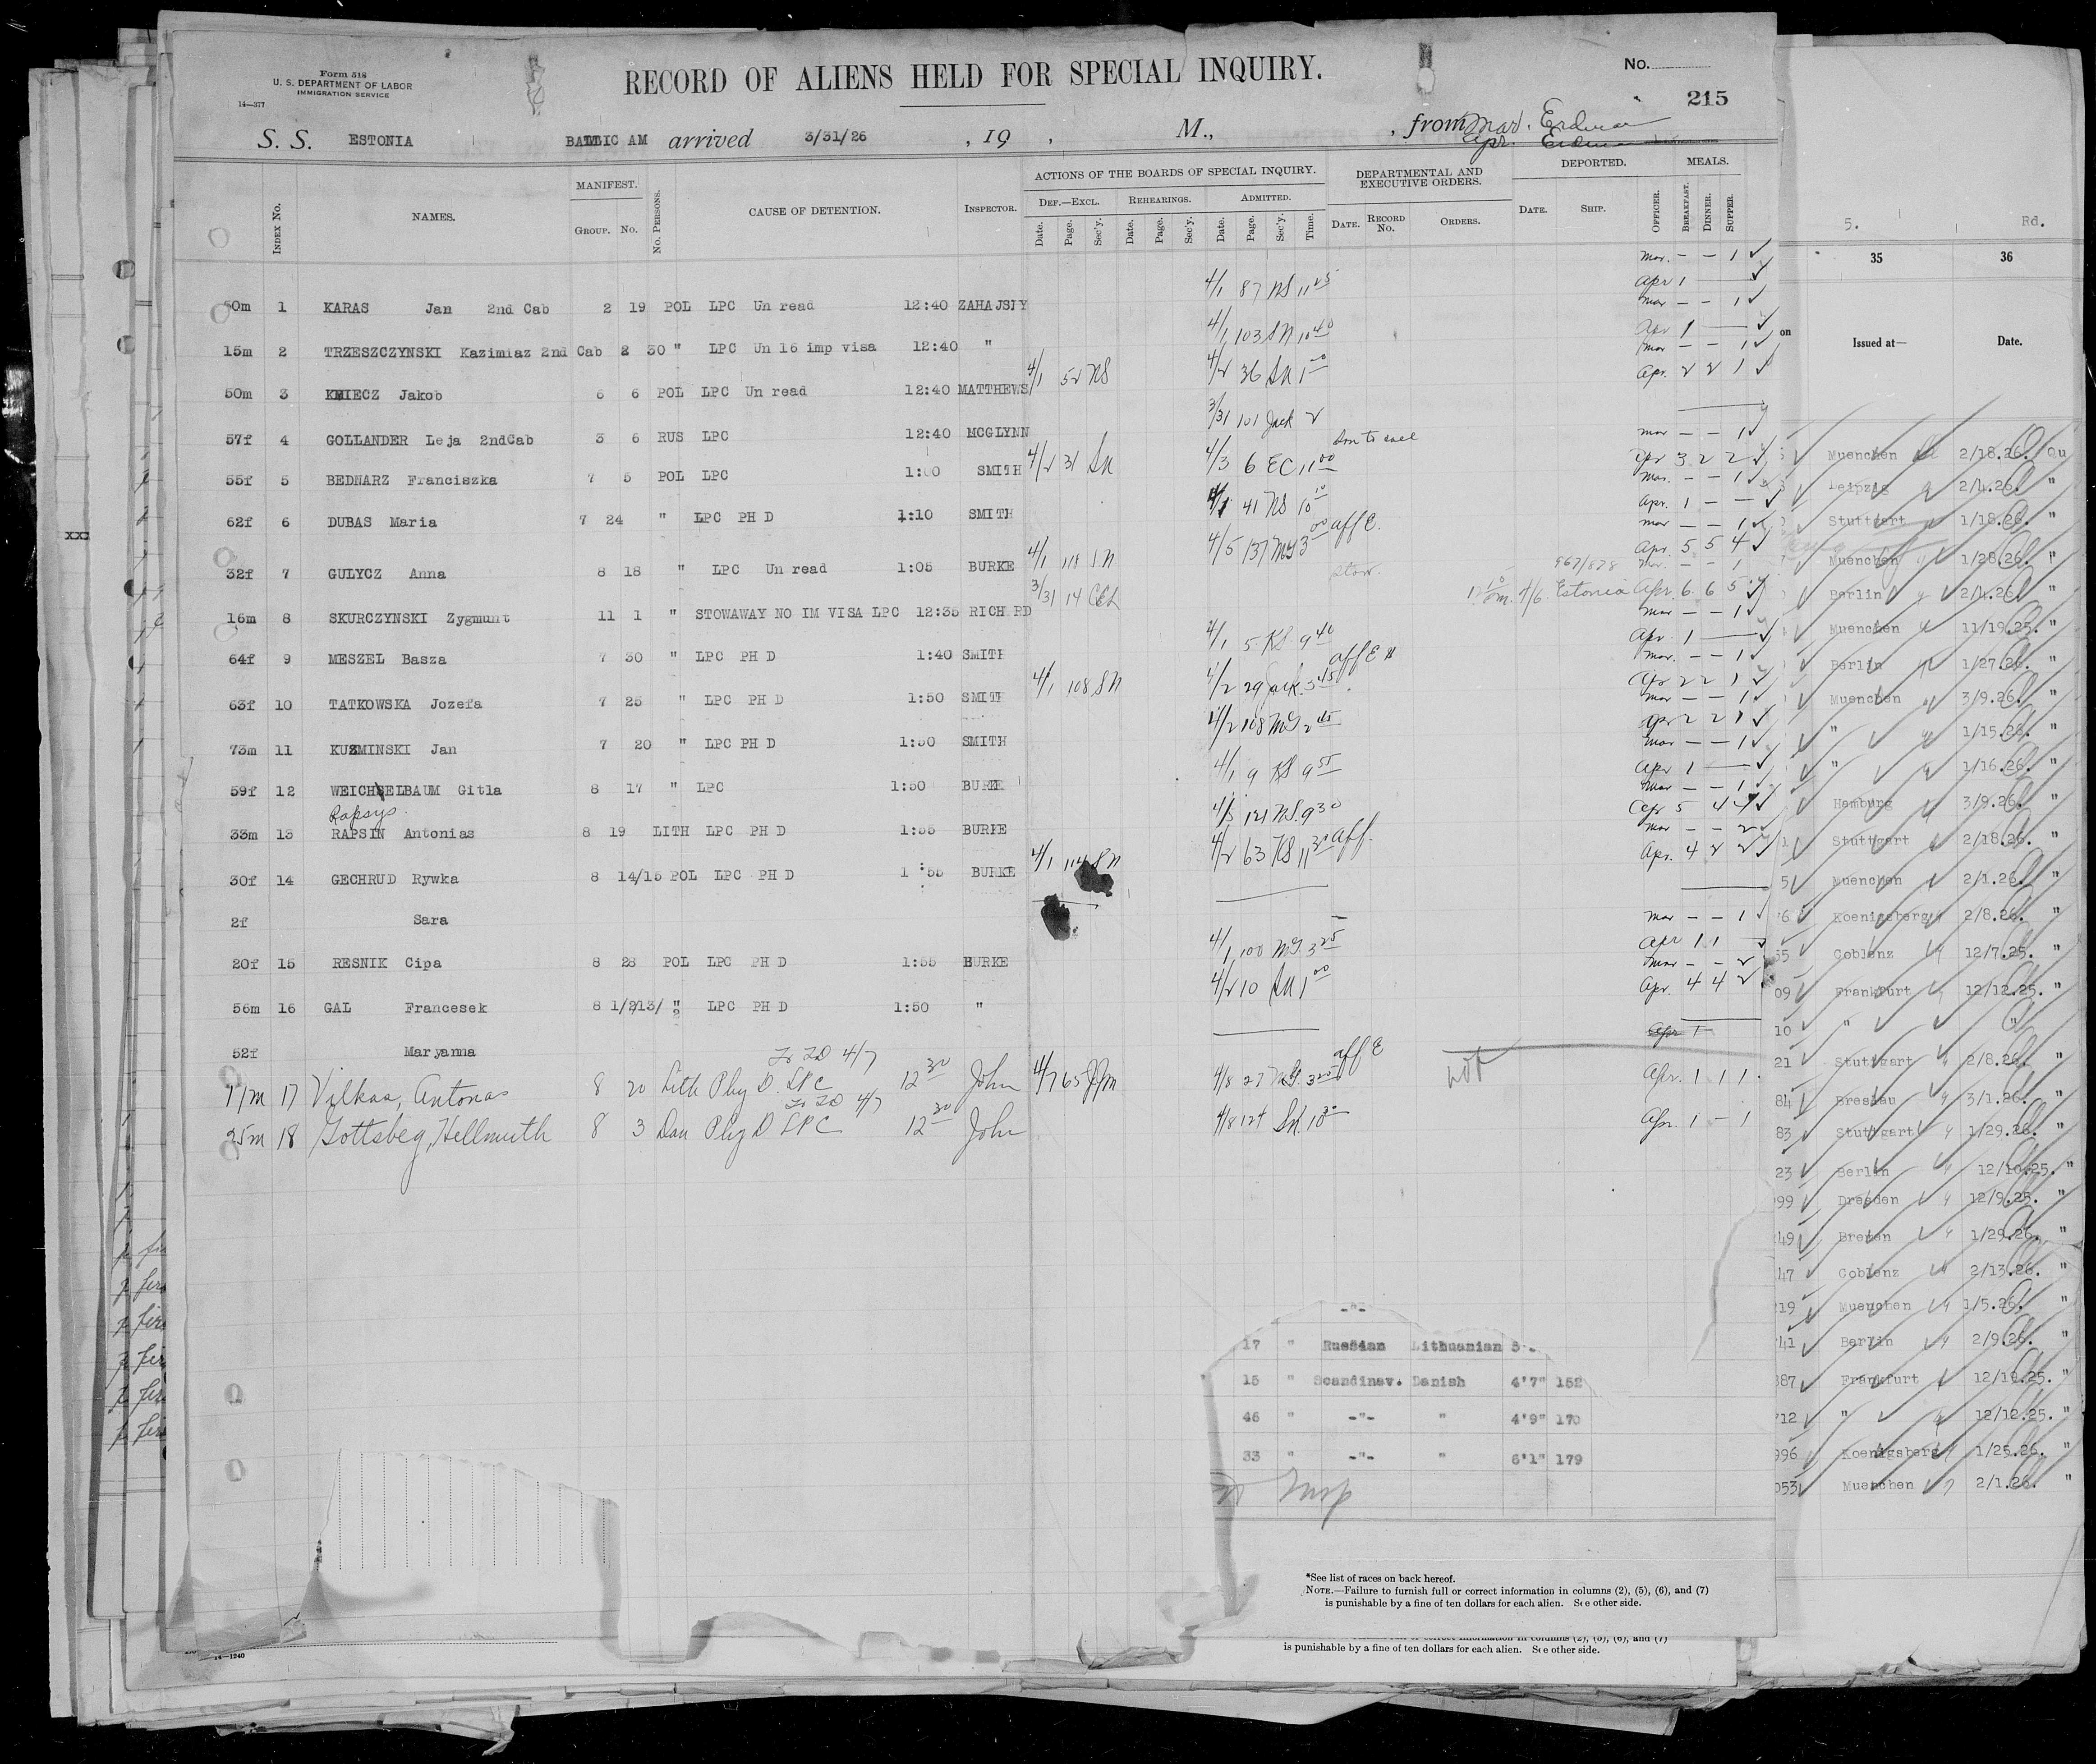 Form 518
U. S. DEPARTMENT OF LABOR
IMMIGRATION SERVICE
14—377
RECORD OF ALIENS HELD FOR SPECIAL INQUIRY.
No.
215
S. S. ESTONIA BALTIC AM arrived 3/31/26 , 19 , M., , from Mar. Erdman
Apr. Erdman
INDEX No. NAMES. MANIFEST. GROUP. No. No. PERSONS. CAUSE OF DETENTION. INSPECTOR. ACTIONS OF THE BOARDS OF SPECIAL INQUIRY. DEF.—EXCL. Date. Page. Sec'y. REHEARINGS. Date. Page. Sec'y. ADMITTED. Date. Page. Sec'y. Time. DEPARTMENTAL AND EXECUTIVE ORDERS. DATE. RECORD No. ORDERS. DEPORTED. DATE. SHIP. OFFICER. MEALS. BREAKFAST. DINNER. SUPPER.
50m 1 KARAS Jan 2nd Cab 2 19 POL LPC Un read 12:40 ZAHAJSIY 4/1 87 NS 11 25 Mar. — — 1 Apr 1
15m 2 TRZESZCZYNSKI Kazimiaz 2nd Cab 2 30 " LPC Un 16 imp visa 12:40 " 4/1 103 SN 10 40 Mar — — 1 Apr 1
50m 3 KMIECZ Jakob 6 6 POL LPC Un read 12:40 MATTHEWS 4/1 52 NS 4/2 36 SN 1 00 Mar — — 1 Apr. 2 2 1
57f 4 GOLLANDER Leja 2ndCab 3 6 RUS LPC 12:40 MCGLYNN 3/31 101 Jack 2
55f 5 BEDNARZ Franciszka 7 5 POL LPC 1:00 SMITH 4/2 31 SN 4/3 6 EC 11 00 Son to call Mar — — 1 Apr 3 2 2
62f 6 DUBAS Maria 7 24 " LPC PH D 1:10 SMITH 4/1 41 NS 10 10 Mar. — — 1 Apr. 1 — —
32f 7 GULYCZ Anna 8 18 " LPC Un read 1:05 BURKE 4/1 118 SN 4/5 137 MG 3 00 aff E. Mar — — 1 Apr. 5 5 4
16m 8 SKURCZYNSKI Zygmunt 11 1 " STOWAWAY NO IM VISA LPC 12:35 RICH RD 3/31 14 CEL stow. 967/878 4/6 Estonia Mar. — — 1 Apr. 6 6 5
64f 9 MESZEL Basza 7 30 " LPC PH D 1:40 SMITH 4/1 5 KS 9 40 Mar — — 1 Apr. 1
63f 10 TATKOWSKA Jozefa 7 25 " LPC PH D 1:50 SMITH 4/1 108 SN 4/2 29 Jack. 3 45 aff E Mar. — — 1 Apr 2 2 1
73m 11 KUZMINSKI Jan 7 20 " LPC PH D 1:50 SMITH 4/2 108 MG 2 45 Mar — — 1 Apr 2 2 1
59f 12 WEICHSELBAUM Gitla 8 17 " LPC 1:50 BURKE 4/1 9 KS 9 55 Mar — — 1 Apr 1
Rapsys.
33m 13 RAPSIN Antonias 8 19 LITH LPC PH D 1:55 BURKE 4/5 121 NS. 9 30 Mar — — 1 Apr 5 4 4
30f 14 GECHRUD Rywka 8 14/15 POL LPC PH D 1:55 BURKE 4/1 114 SN 4/2 63 KS 11 30 aff. Mar — — 2 Apr. 4 2 2
2f Sara
20f 15 RESNIK Cipa 8 28 POL LPC PH D 1:55 BURKE 4/1 100 MG 3 25 Mar — — 1 Apr 1 1 —
56m 16 GAL Francesek 8 1/213/ " LPC PH D 1:50 " 4/2 10 SN 1 00 Mar — — 2 Apr. 4 4 2
52f Maryanna Apr 1
17m 17 Vilkas, Antonas 8 20 Lith Phy D. LPC To ID 4/7 12 30 John 4/7 65 JJM 4/8 27 MG. 3 20 aff E Apr. 1 1 1
25m 18 Gottsbeg, Hellmuth 8 3 Dan Phy D LPC To ID 4/7 12 30 John 4/8 124 SN. 10 30 Apr. 1 — 1
-"-
17 " Russian Lithuanian 5
15 " Scandinav. Danish 4'7" 152
46 " -"- " 4'9" 170
33 " -"- " 6'1" 179
*See list of races on back hereof.
NOTE.—Failure to furnish full or correct information in columns (2), (5), (6), and (7)
is punishable by a fine of ten dollars for each alien. See other side.
is punishable by a fine of ten dollars for each alien. See other side.
14—1240
XXX
5. Rd.
35 36
on Issued at— Date.
Muenchen 2/18.26. Qu
Leipzig 2/4.26. "
Stuttgart 1/18.26. "
Muenchen 1/28.26. "
Berlin 2/4.26. "
Muenchen 11/19.25. "
Berlin 1/27.26. "
Muenchen 3/9.26. "
" 1/15.26. "
" 1/16.26. "
Hamburg 3/9.26. "
Stuttgart 2/18.26. "
5 Muenchen 2/1.26. "
6 Koenigsberg 2/8.26. "
55 Coblenz 12/7.25. "
09 Frankfurt 12/12.25. "
10 " "
21 Stuttgart 2/8.26. "
84 Breslau 3/1.26. "
83 Stuttgart 1/29.26. "
23 Berlin 12/10.25. "
99 Dresden 12/9.25. "
49 Bremen 1/29.26. "
47 Coblenz 2/13.26. "
19 Muenchen 1/5.26. "
41 Berlin 2/9.26. "
387 Frankfurt 12/19.25. "
712 " 12/12.25. "
996 Koenigsberg 1/25.26. "
053 Muenchen 2/1.26. "